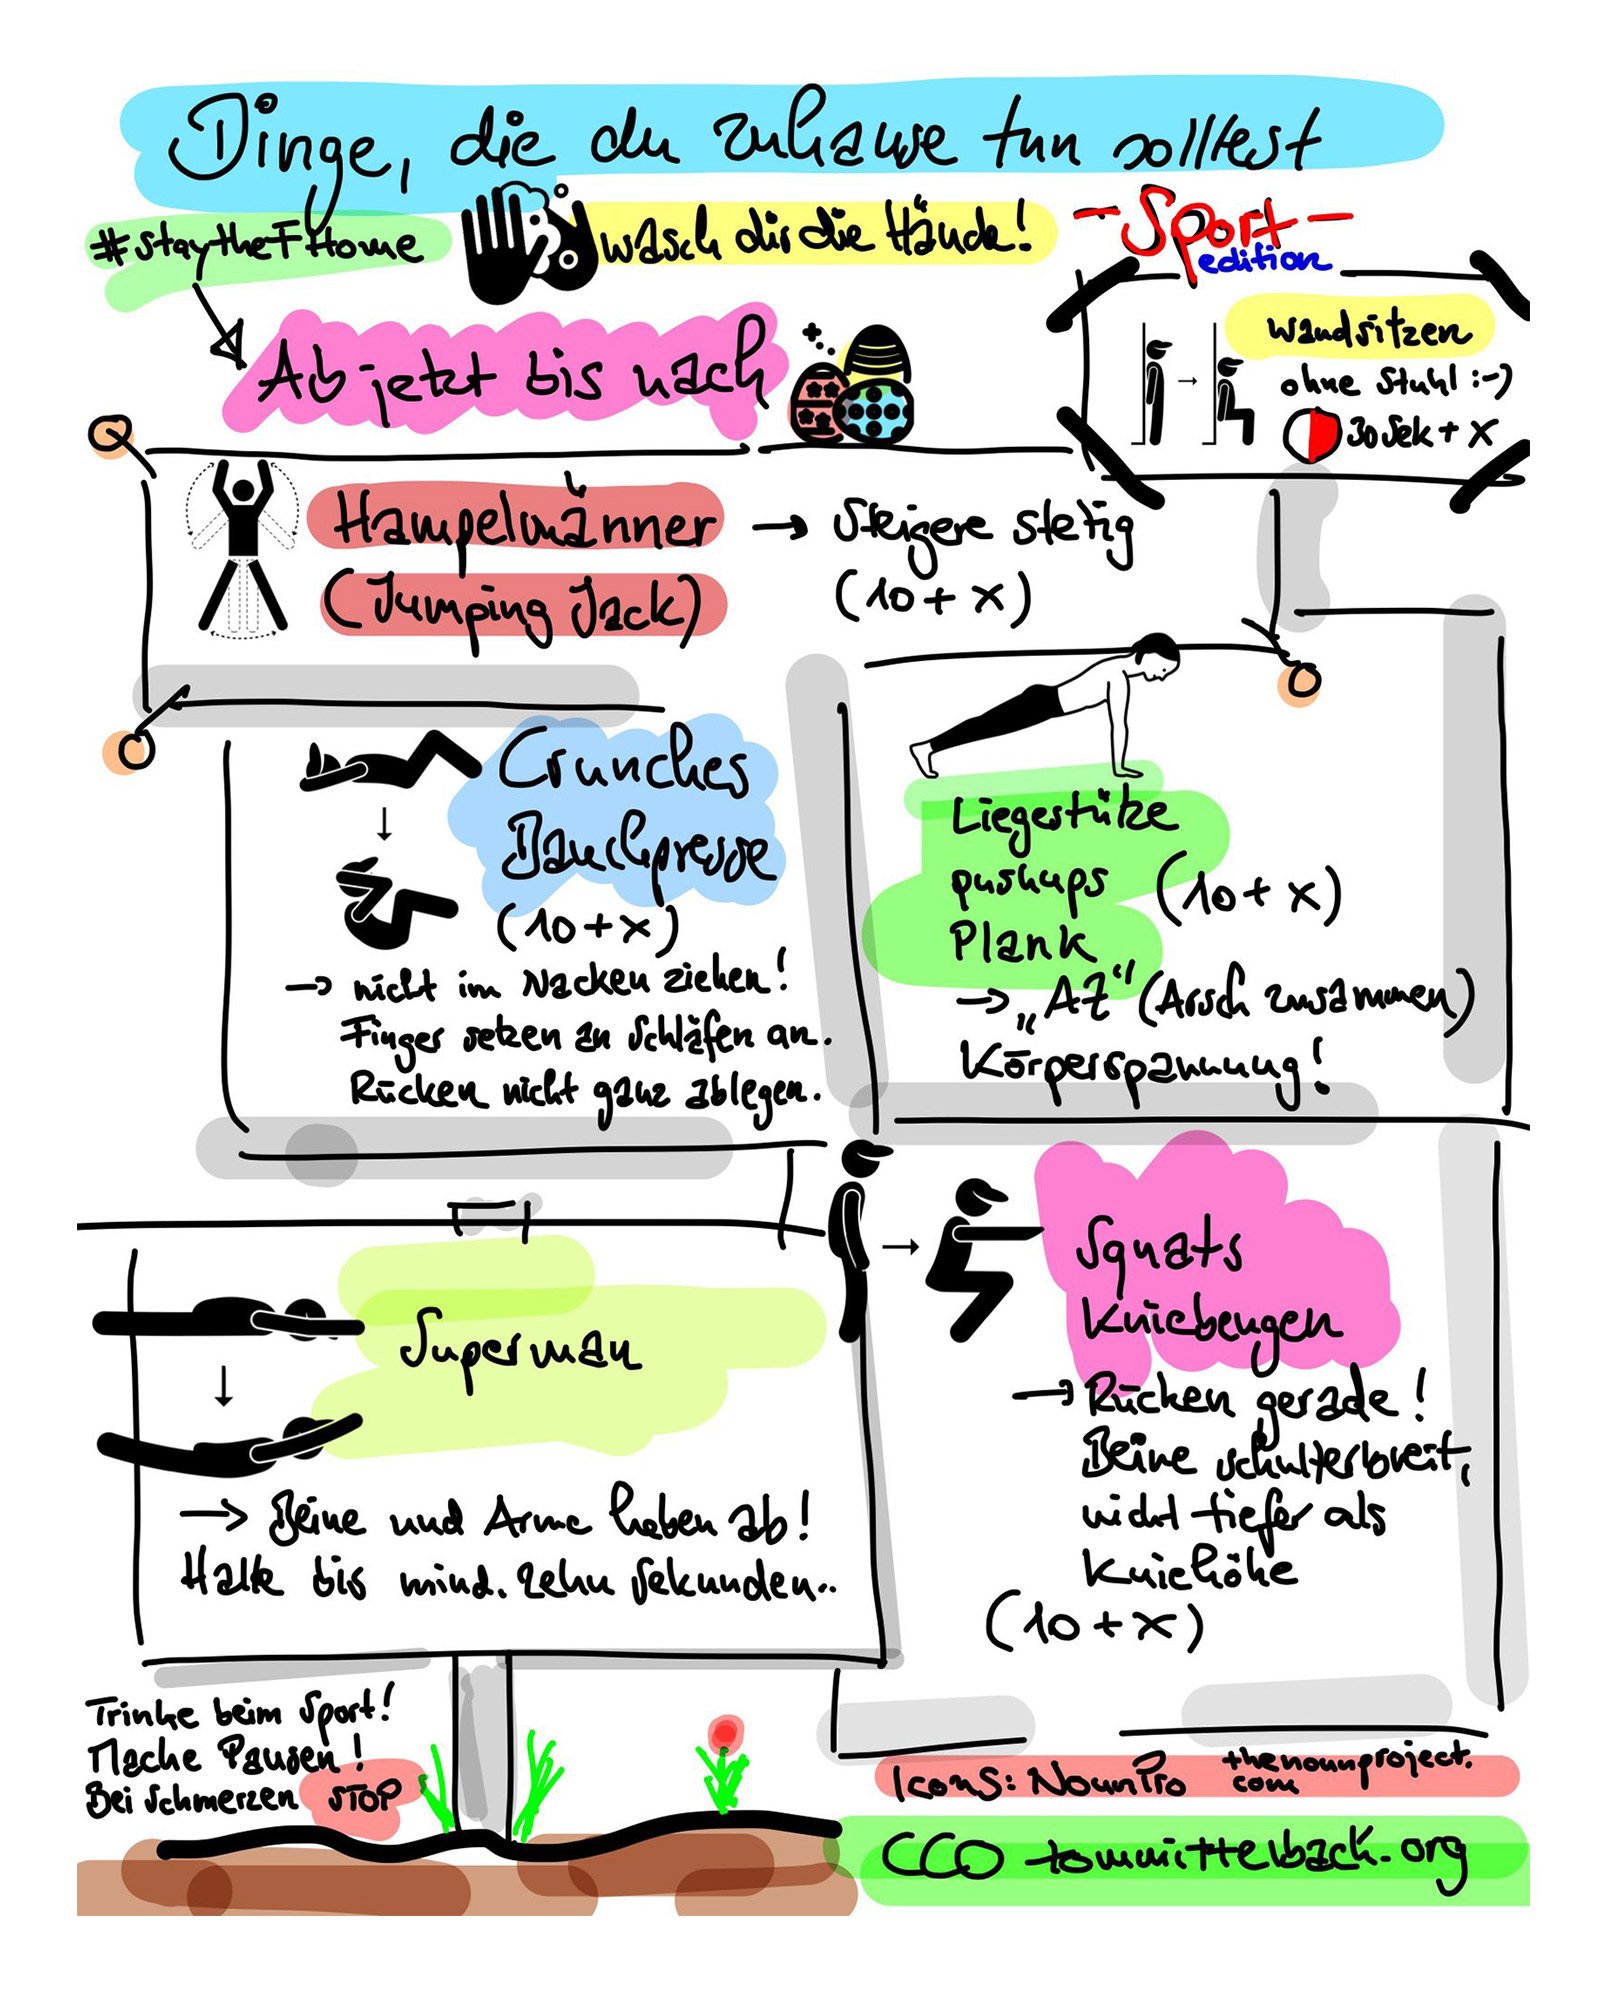 Dinge, die du zuhause tun solltest
#staytheFHome
wasch dir die Hände!
-Sport-
edition
Ab jetzt bis nach
wandsitzen
ohne Stuhl :-)
30 Sek + x
Hampelmänner
(Jumping Jack)
→ Steigere stetig
(10 + x)
Crunches
Bauchpresse
(10 + x)
→ nicht im Nacken ziehen!
Finger setzen an Schläfen an.
Rücken nicht ganz ablegen.
Liegestütze
pushups
Plank
(10 + x)
→ „AZ" (Arsch zusammen)
Körperspannung!
Superman
→ Beine und Arme heben ab!
Halte bis mind. zehn Sekunden..
Squats
Kniebeugen
→ Rücken gerade!
Beine schulterbreit,
nicht tiefer als
Kniehöhe
(10 + x)
Trinke beim Sport!
Mache Pausen!
Bei Schmerzen STOP
Icons: NounPro thenounproject.
com
CC0 tommittelbach.org